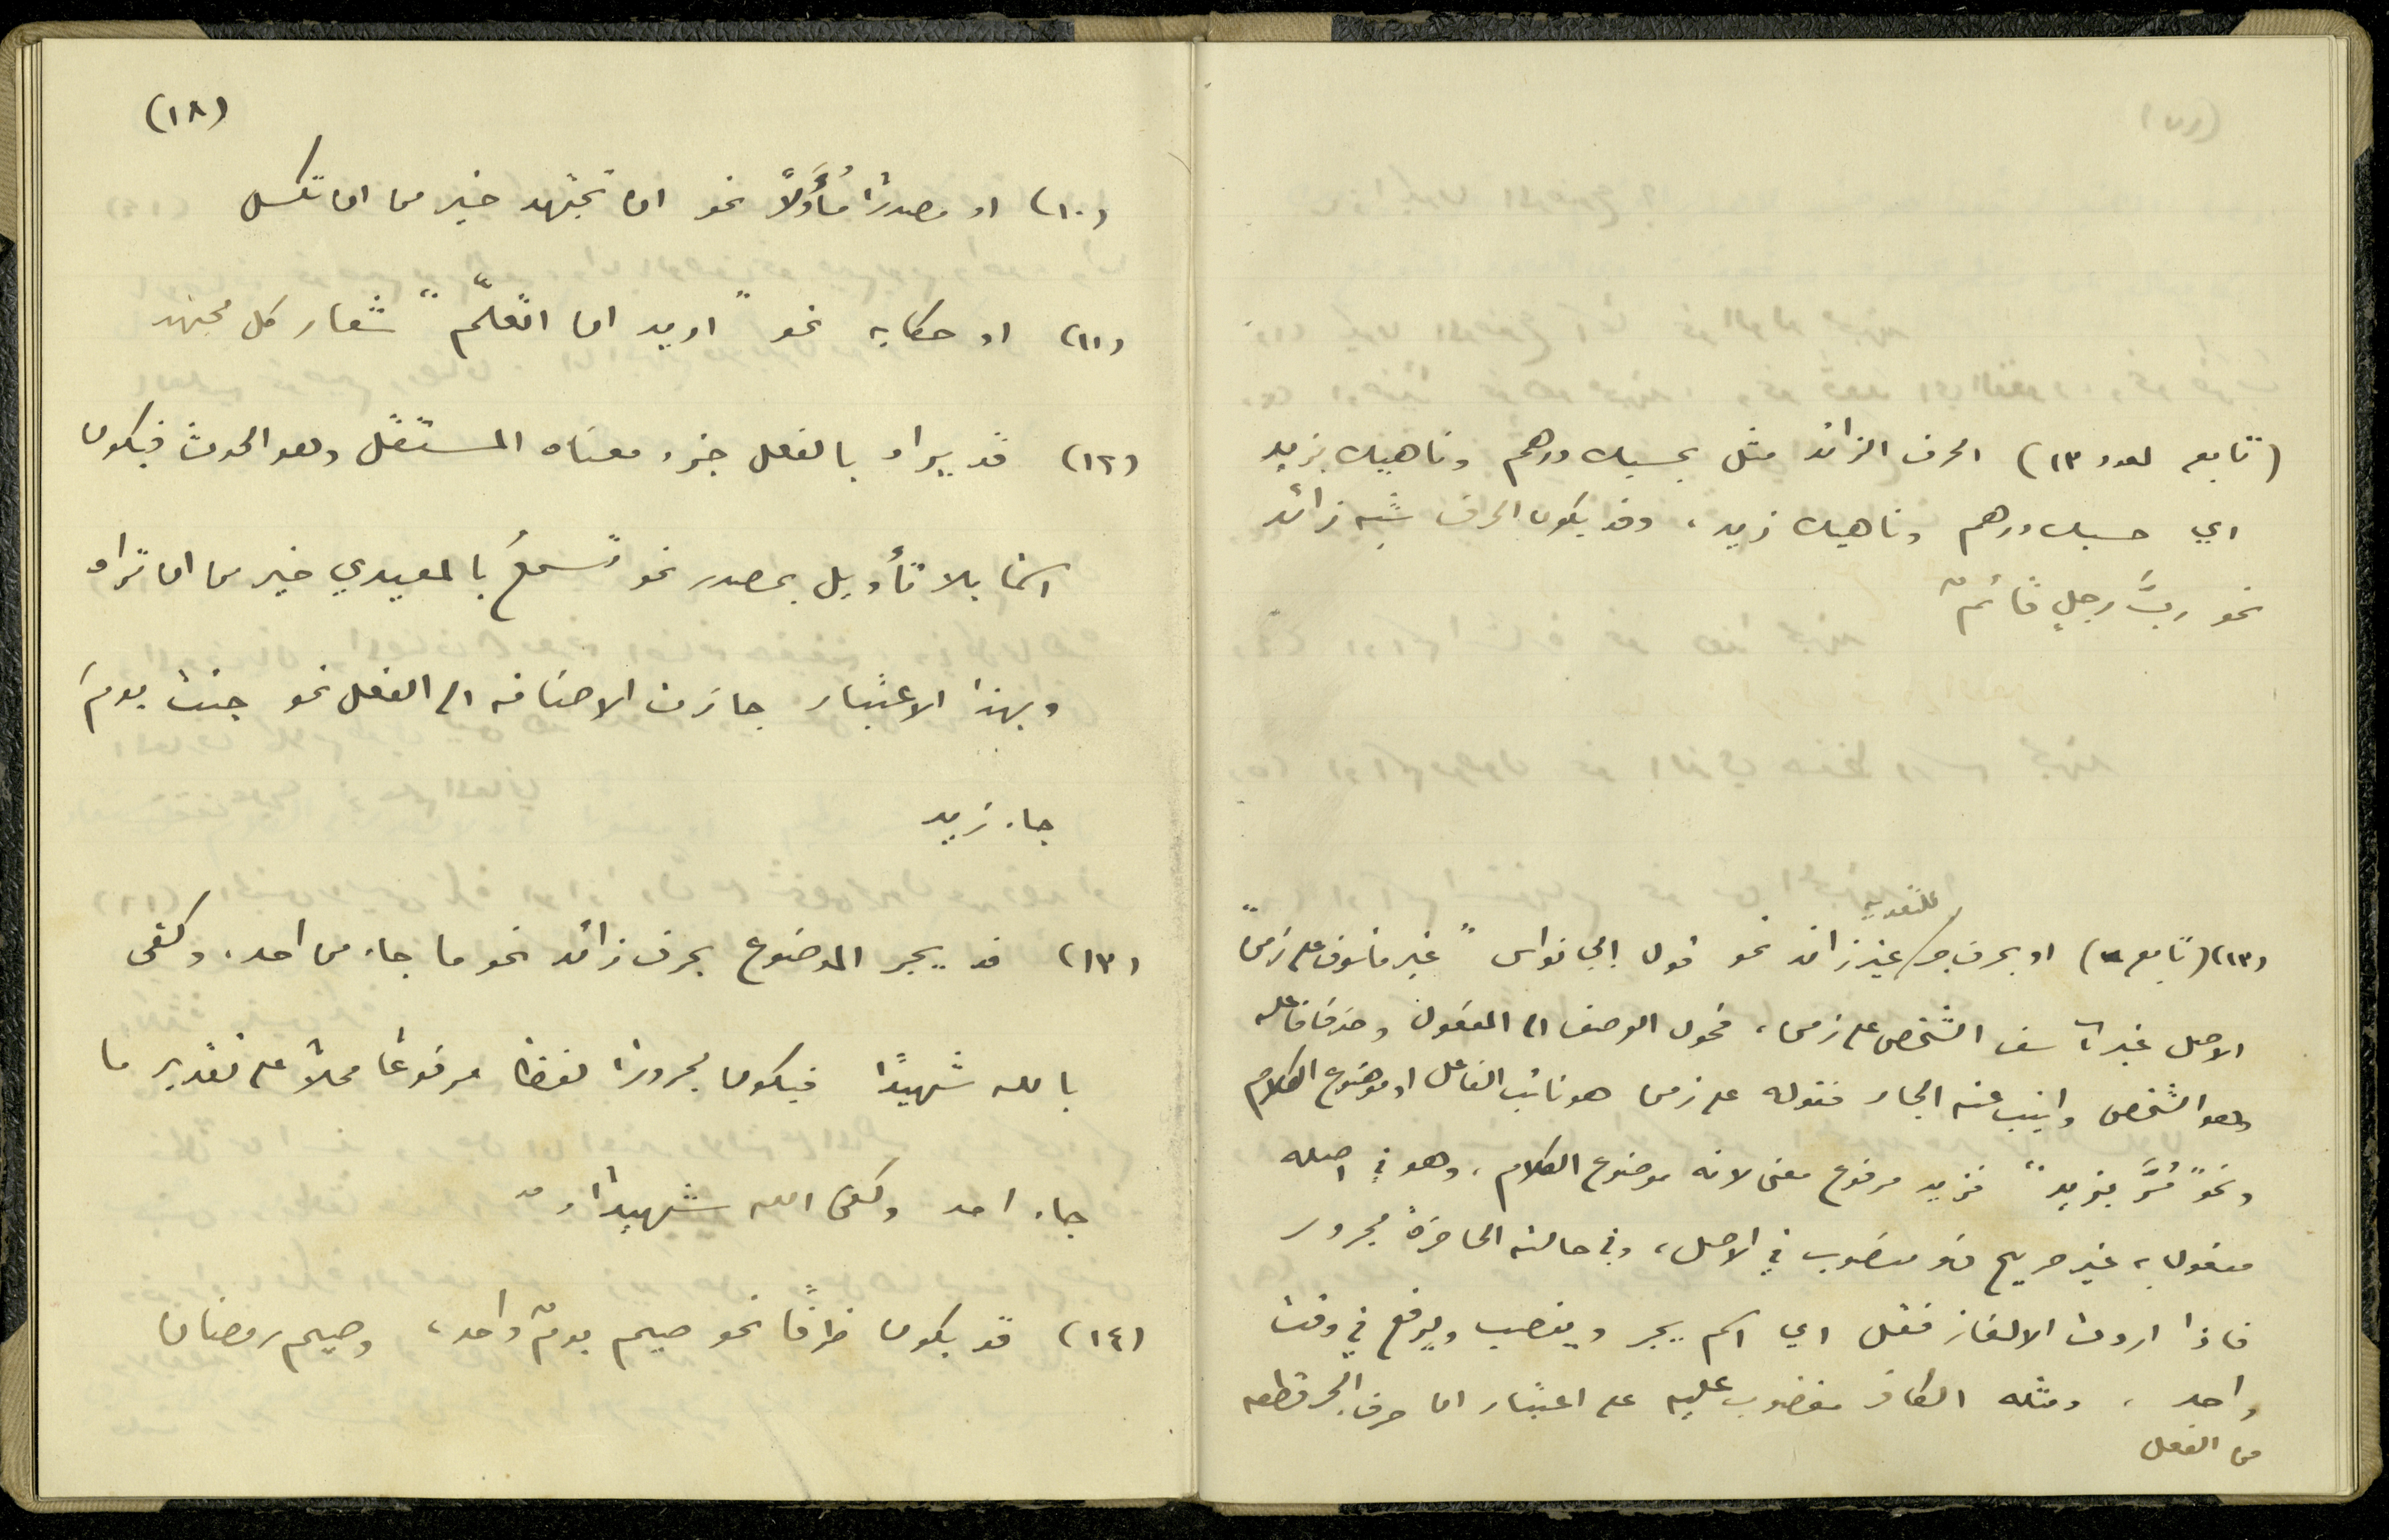 (تابع لعدد ١٣) الحرف الزائد مثل بحسبك درهم وناهيك بزيد
اي حسبك درهم وناهيك زيد، وقد يكون الحرف شبه زائد
نحو ربَّ رجلٍ قائم
للتعدية
(١٣) (تابع) او بحرف جر غير زائد نحو قول ابي نواس "غير مأسوف على زمن"
الاصل غير آسف الشخص على زمن، فحول الوصف الى المفعول وحذف فاعله
وهو الشخص وانيب عنه الجار فقوله على زمن هو نائب الفاعل او موضوع الكلام
ونحو "مُرَّ بزيد" فزيد مرفوع معنى لانه موضوع الكلام، وهو في اصله
مفعول به غير صريح فهو منصوب في الاصل، وفي حالته الحاضرة مجرور
فاذا اردت الالغاز فقل اي اسم يجر وينصب ويرفع في وقت
واحد، ومثله الكافر مغضوب عليه على اعتبار ان حرف الجر قطعه
من الفعل
(١٨)
(١٠) او مصدرًا مُأَوَّلاً نحو ان تجتهد خير من ان تكسل
(١١) او حكاية نحو "اريد ان اتعلّم" شعار كل مجتهد
(١٢) قد يراد بالفعل جزء معناه المستقل وهو الحدث فيكون
اسمًا بلا تأويل بمصدر نحو تسمعُ بالمعيدي خير من ان تراه
وبهذا الاعتبار جازت الاضافه الى الفعل نحو جئت يومَ
جاء زيد
(١٣) قد يجر الموضوع بحرف زائد نحو ما جاء من احد، وكفى
بالله شهيدًا فيكون مجرورًا لفظًا مرفوعًا محلاً على تقدير ما
جاء احد وكفى الله شهيدًا
(١٤) قد يكون ظرفًا نحو صيم يومٌ واحد، وصيم رمضان